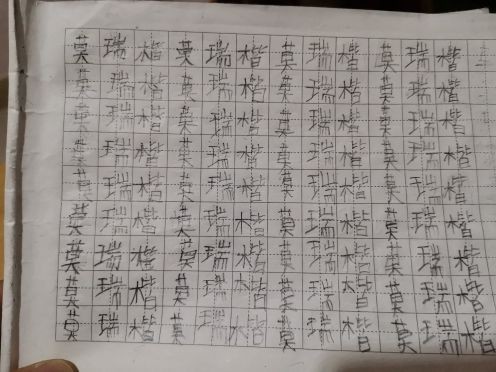 莫瑞楷莫瑞楷莫瑞楷莫瑞楷
莫瑞楷莫瑞楷莫瑞楷莫瑞楷
莫瑞楷莫瑞楷莫瑞楷莫瑞楷
莫瑞楷莫瑞楷莫瑞楷莫瑞楷
莫瑞楷莫瑞楷莫瑞楷莫瑞楷
莫瑞楷莫瑞楷莫瑞楷莫瑞楷
莫瑞楷莫瑞楷莫瑞楷莫瑞楷
莫瑞楷莫瑞楷莫瑞楷莫瑞楷
莫瑞楷莫瑞楷莫瑞楷莫瑞楷